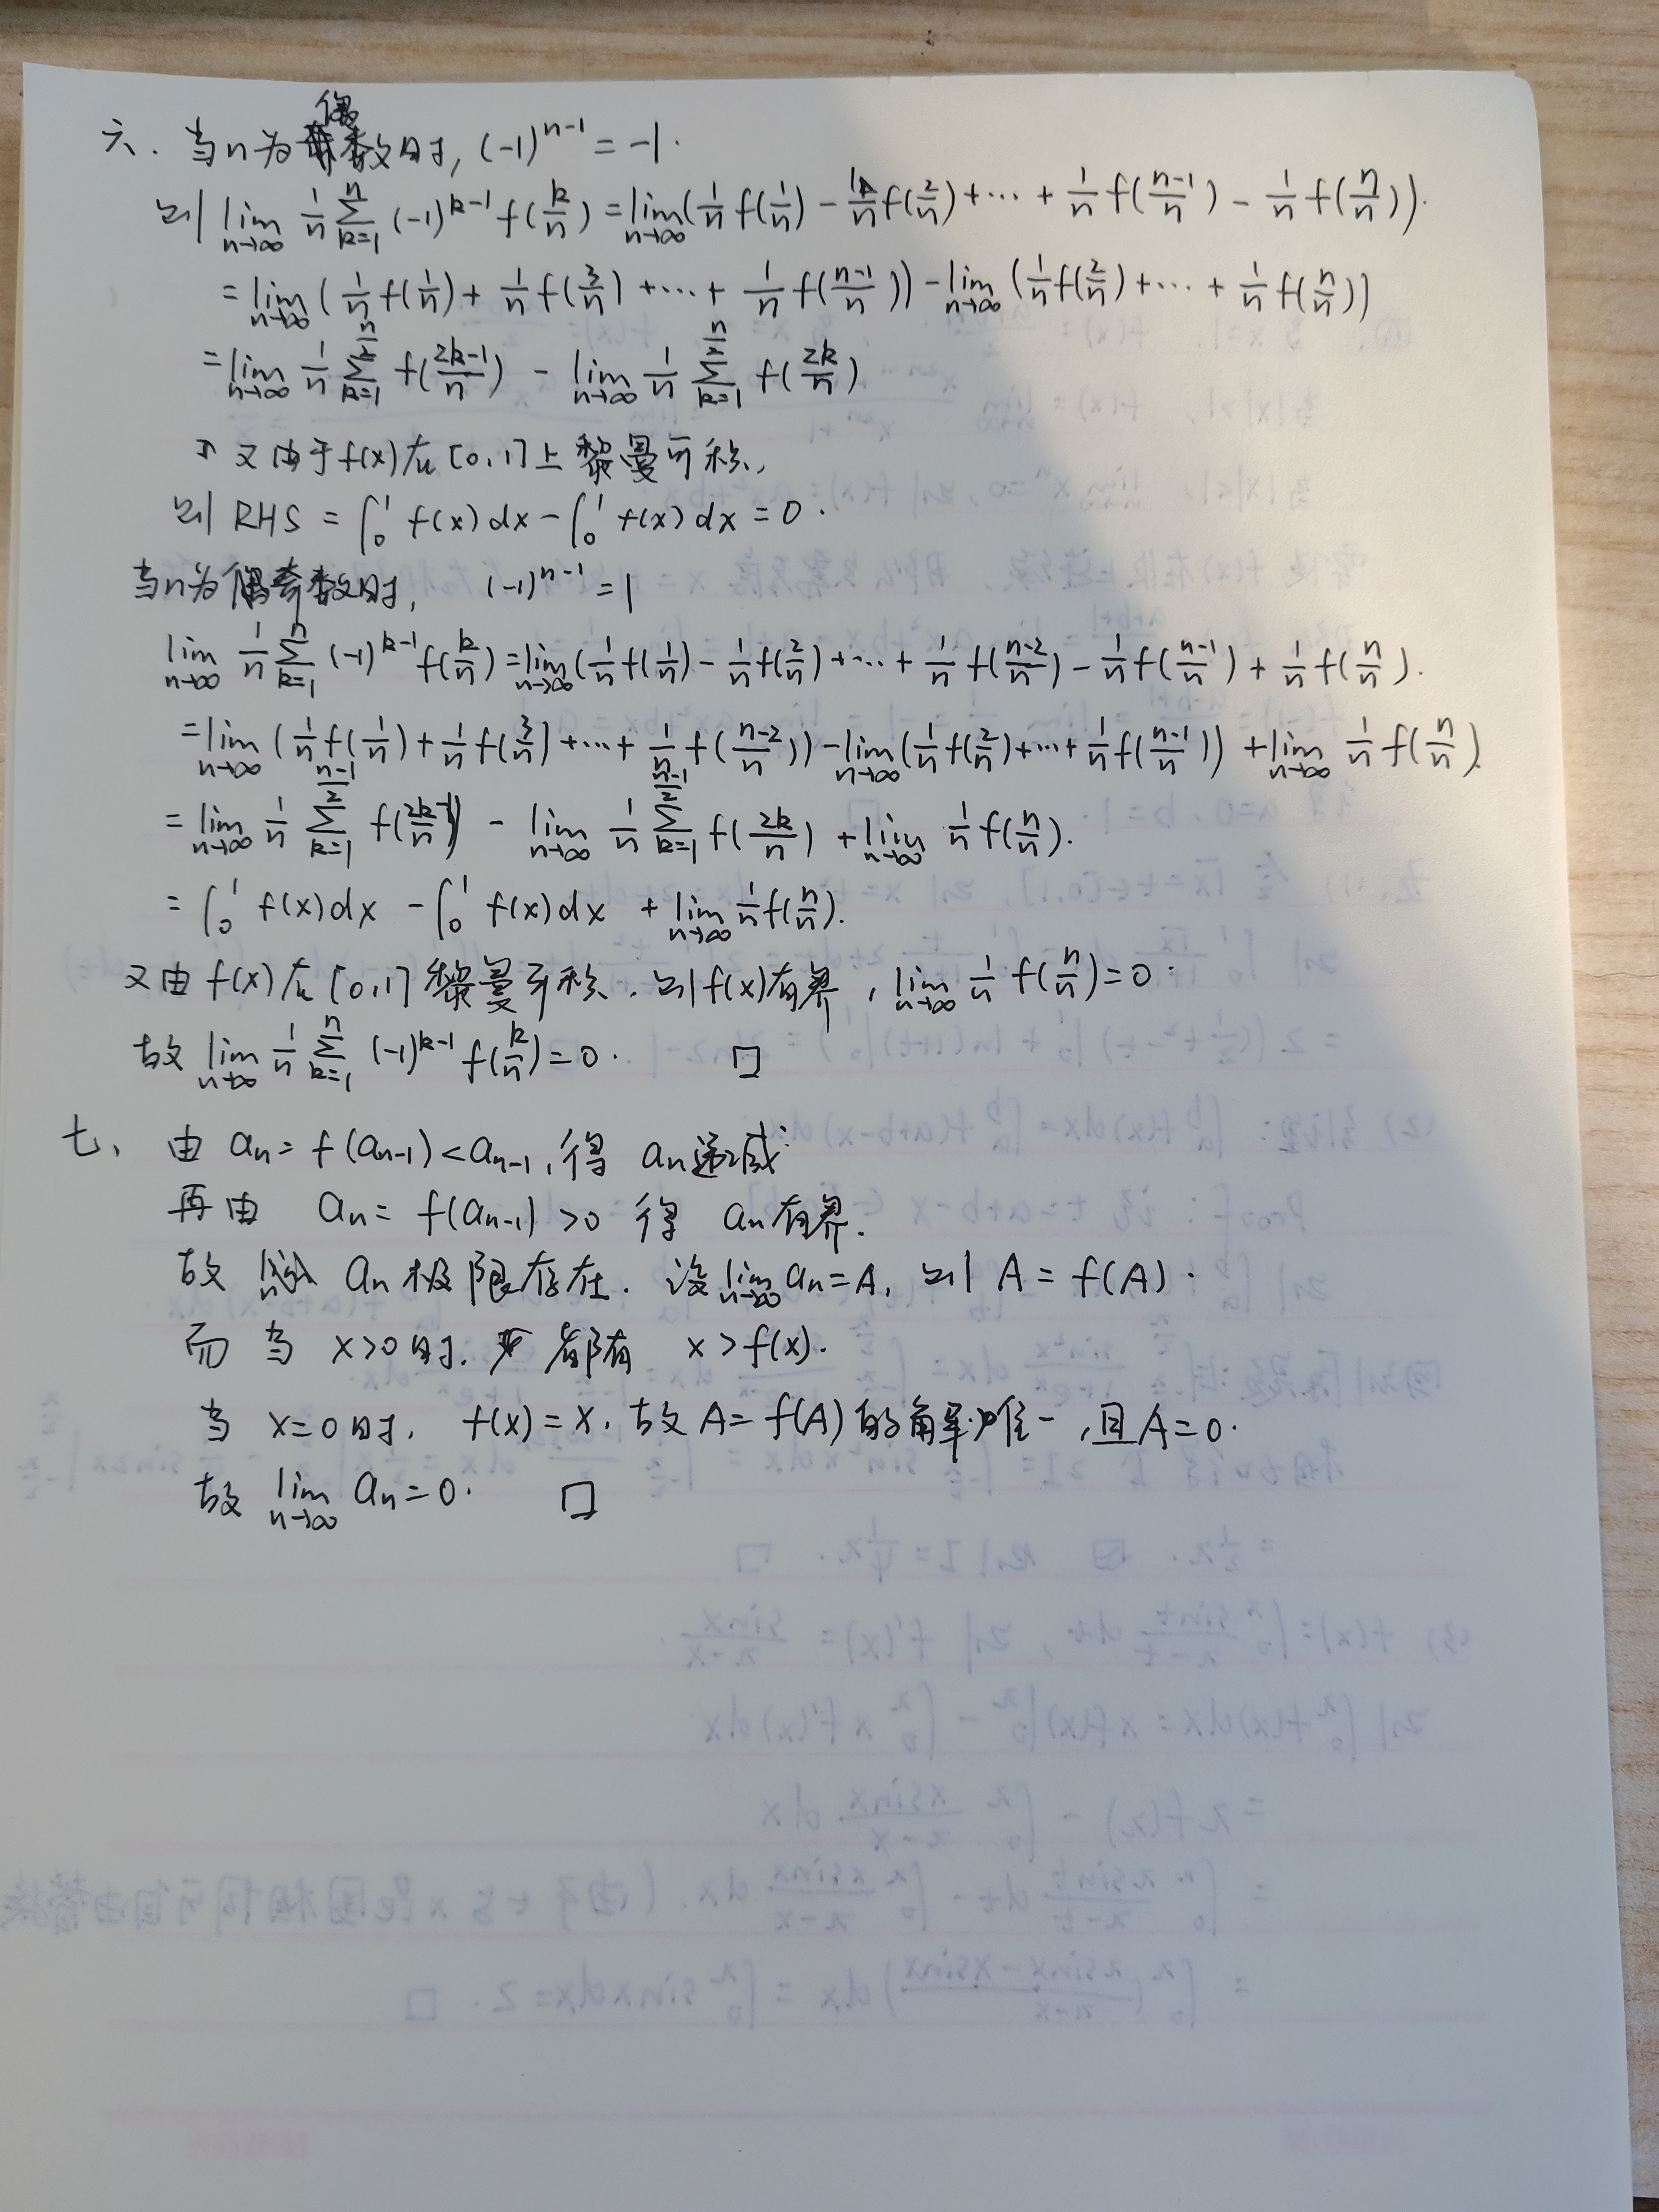 六. 当n为偶数时, (-1)^{n-1} = -1.
则 lim_{n→∞} 1/n ∑_{k=1}^{n} (-1)^{k-1} f(k/n) = lim_{n→∞} (1/n f(1/n) - 1/n f(2/n) + ··· + 1/n f((n-1)/n) - 1/n f(n/n)).
= lim_{n→∞} (1/n f(1/n) + 1/n f(3/n) + ··· + 1/n f((n-1)/n)) - lim_{n→∞} (1/n f(2/n) + ··· + 1/n f(n/n))
= lim_{n→∞} 1/n ∑_{k=1}^{n/2} f((2k-1)/n) - lim_{n→∞} 1/n ∑_{k=1}^{n/2} f(2k/n)
又由于 f(x) 在 [0,1] 上黎曼可积,
则 RHS = ∫_0^1 f(x) dx - ∫_0^1 f(x) dx = 0.
当n为奇数时, (-1)^{n-1} = 1
lim_{n→∞} 1/n ∑_{k=1}^{n} (-1)^{k-1} f(k/n) = lim_{n→∞} (1/n f(1/n) - 1/n f(2/n) + ··· + 1/n f((n-2)/n) - 1/n f((n-1)/n) + 1/n f(n/n).
= lim_{n→∞} (1/n f(1/n) + 1/n f(3/n) + ··· + 1/n f((n-2)/n)) - lim_{n→∞} (1/n f(2/n) + ··· + 1/n f((n-1)/n)) + lim_{n→∞} 1/n f(n/n).
= lim_{n→∞} 1/n ∑_{k=1}^{(n-1)/2} f((2k-1)/n) - lim_{n→∞} 1/n ∑_{k=1}^{(n-1)/2} f(2k/n) + lim_{n→∞} 1/n f(n/n).
= ∫_0^1 f(x) dx - ∫_0^1 f(x) dx + lim_{n→∞} 1/n f(n/n).
又由 f(x) 在 [0,1] 黎曼可积. 则 f(x) 有界, lim_{n→∞} 1/n f(n/n) = 0.
故 lim_{n→∞} 1/n ∑_{k=1}^{n} (-1)^{k-1} f(k/n) = 0. □
七、由 a_n = f(a_{n-1}) < a_{n-1}, 得 a_n 递减
再由 a_n = f(a_{n-1}) > 0 得 a_n 有界.
故 a_n 极限存在. 设 lim_{n→∞} a_n = A, 则 A = f(A).
而当 x>0 时. 都有 x > f(x).
当 x=0 时, f(x) = x. 故 A = f(A) 的解唯一, 且 A = 0.
故 lim_{n→∞} a_n = 0. □